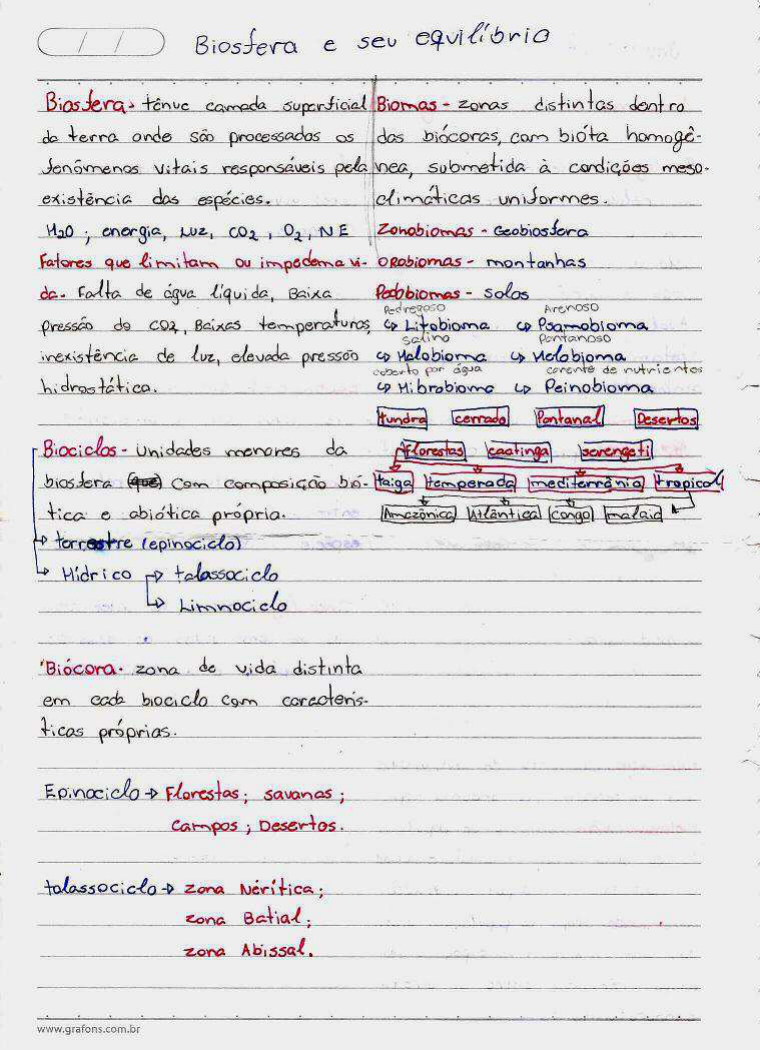 / /
Biosfera e seu equilíbrio
Biosfera - tênue camada superficial
da terra onde são processados os
fenômenos vitais responsáveis pela
existência das espécies.
H2O ; energia, Luz, CO2 , O2, NE
Fatores que limitam ou impedem a vi-
da. Falta de água líquida, Baixa
pressão do CO2, Baixas temperaturas,
inexistência de luz, elevada pressão
hidrostática.
Biociclos - Unidades menores da
biosfera (que) com composição bió-
tica e abiótica própria.
terrestre (epinociclo)
Hídrico → talassociclo
→ Limnociclo
Biócora - zona de vida distinta
em cada biociclo com caracterís-
ticas próprias.
Epinociclo → Florestas; savanas;
campos; Desertos.
talassociclo → zona Nérítica;
zona Batial;
zona Abissal.
Biomas - zonas distintas dentro
das biócoras, com bióta homogê-
nea, submetida à condições meso-
climáticas uniformes.
Zonobiomas - Geobiosfera
Orobiomas - montanhas
Pedobiomas - solos
Pedregoso Arenoso
↳ Litobioma ↳ Psamobioma
salino Pantanoso
↳ Halobioma ↳ Helobioma
coberto por água carente de nutrientes
↳ Hibrobioma ↳ Peinobioma
tundra cerrado Pantanal Desertos
florestas caatinga serengeti
taiga temperada mediterrânia tropical
Amazônica Atlântica congo malaia
www.grafons.com.br